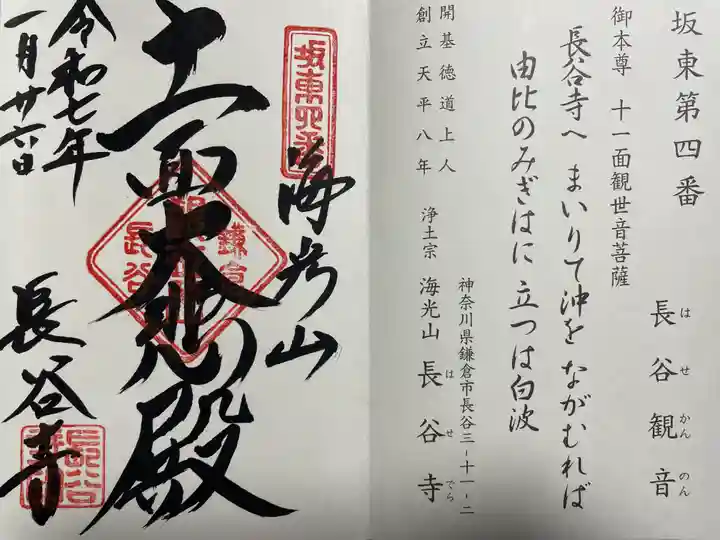 坂東第四番
長谷観音
はせかんのん
御本尊 十一面観世音菩薩
長谷寺へ まいりて沖を ながむれば
由比のみぎはに 立つは白波
開基徳道上人
創立天平八年
神奈川県鎌倉市長谷三-十一-二
浄土宗 海光山 長谷寺
はせでら
坂東四番
海光山
十一面大悲殿
鎌倉
長谷
令和七年
一月廿六日
長谷寺